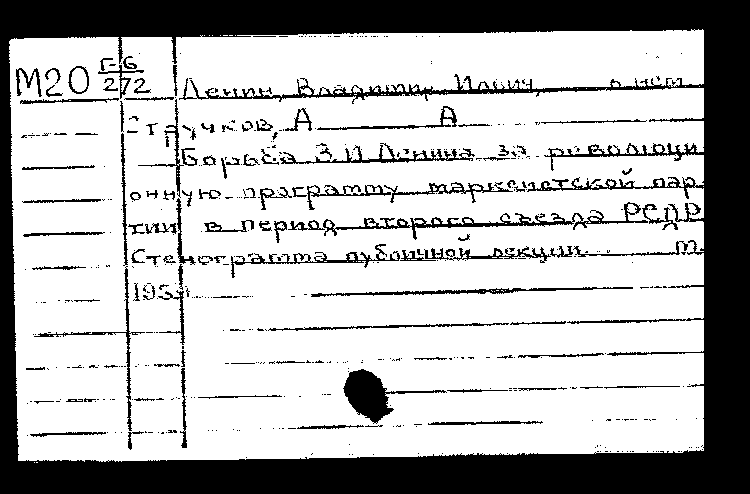 М20 Г-6/272 Ленин, Владимир Ильич,
Стручков, А А
Борьба В И Ленина за революци
онную программу марксистской пар
тии в период второго съезда РСДР
Стенограмма публичной лекции. м.